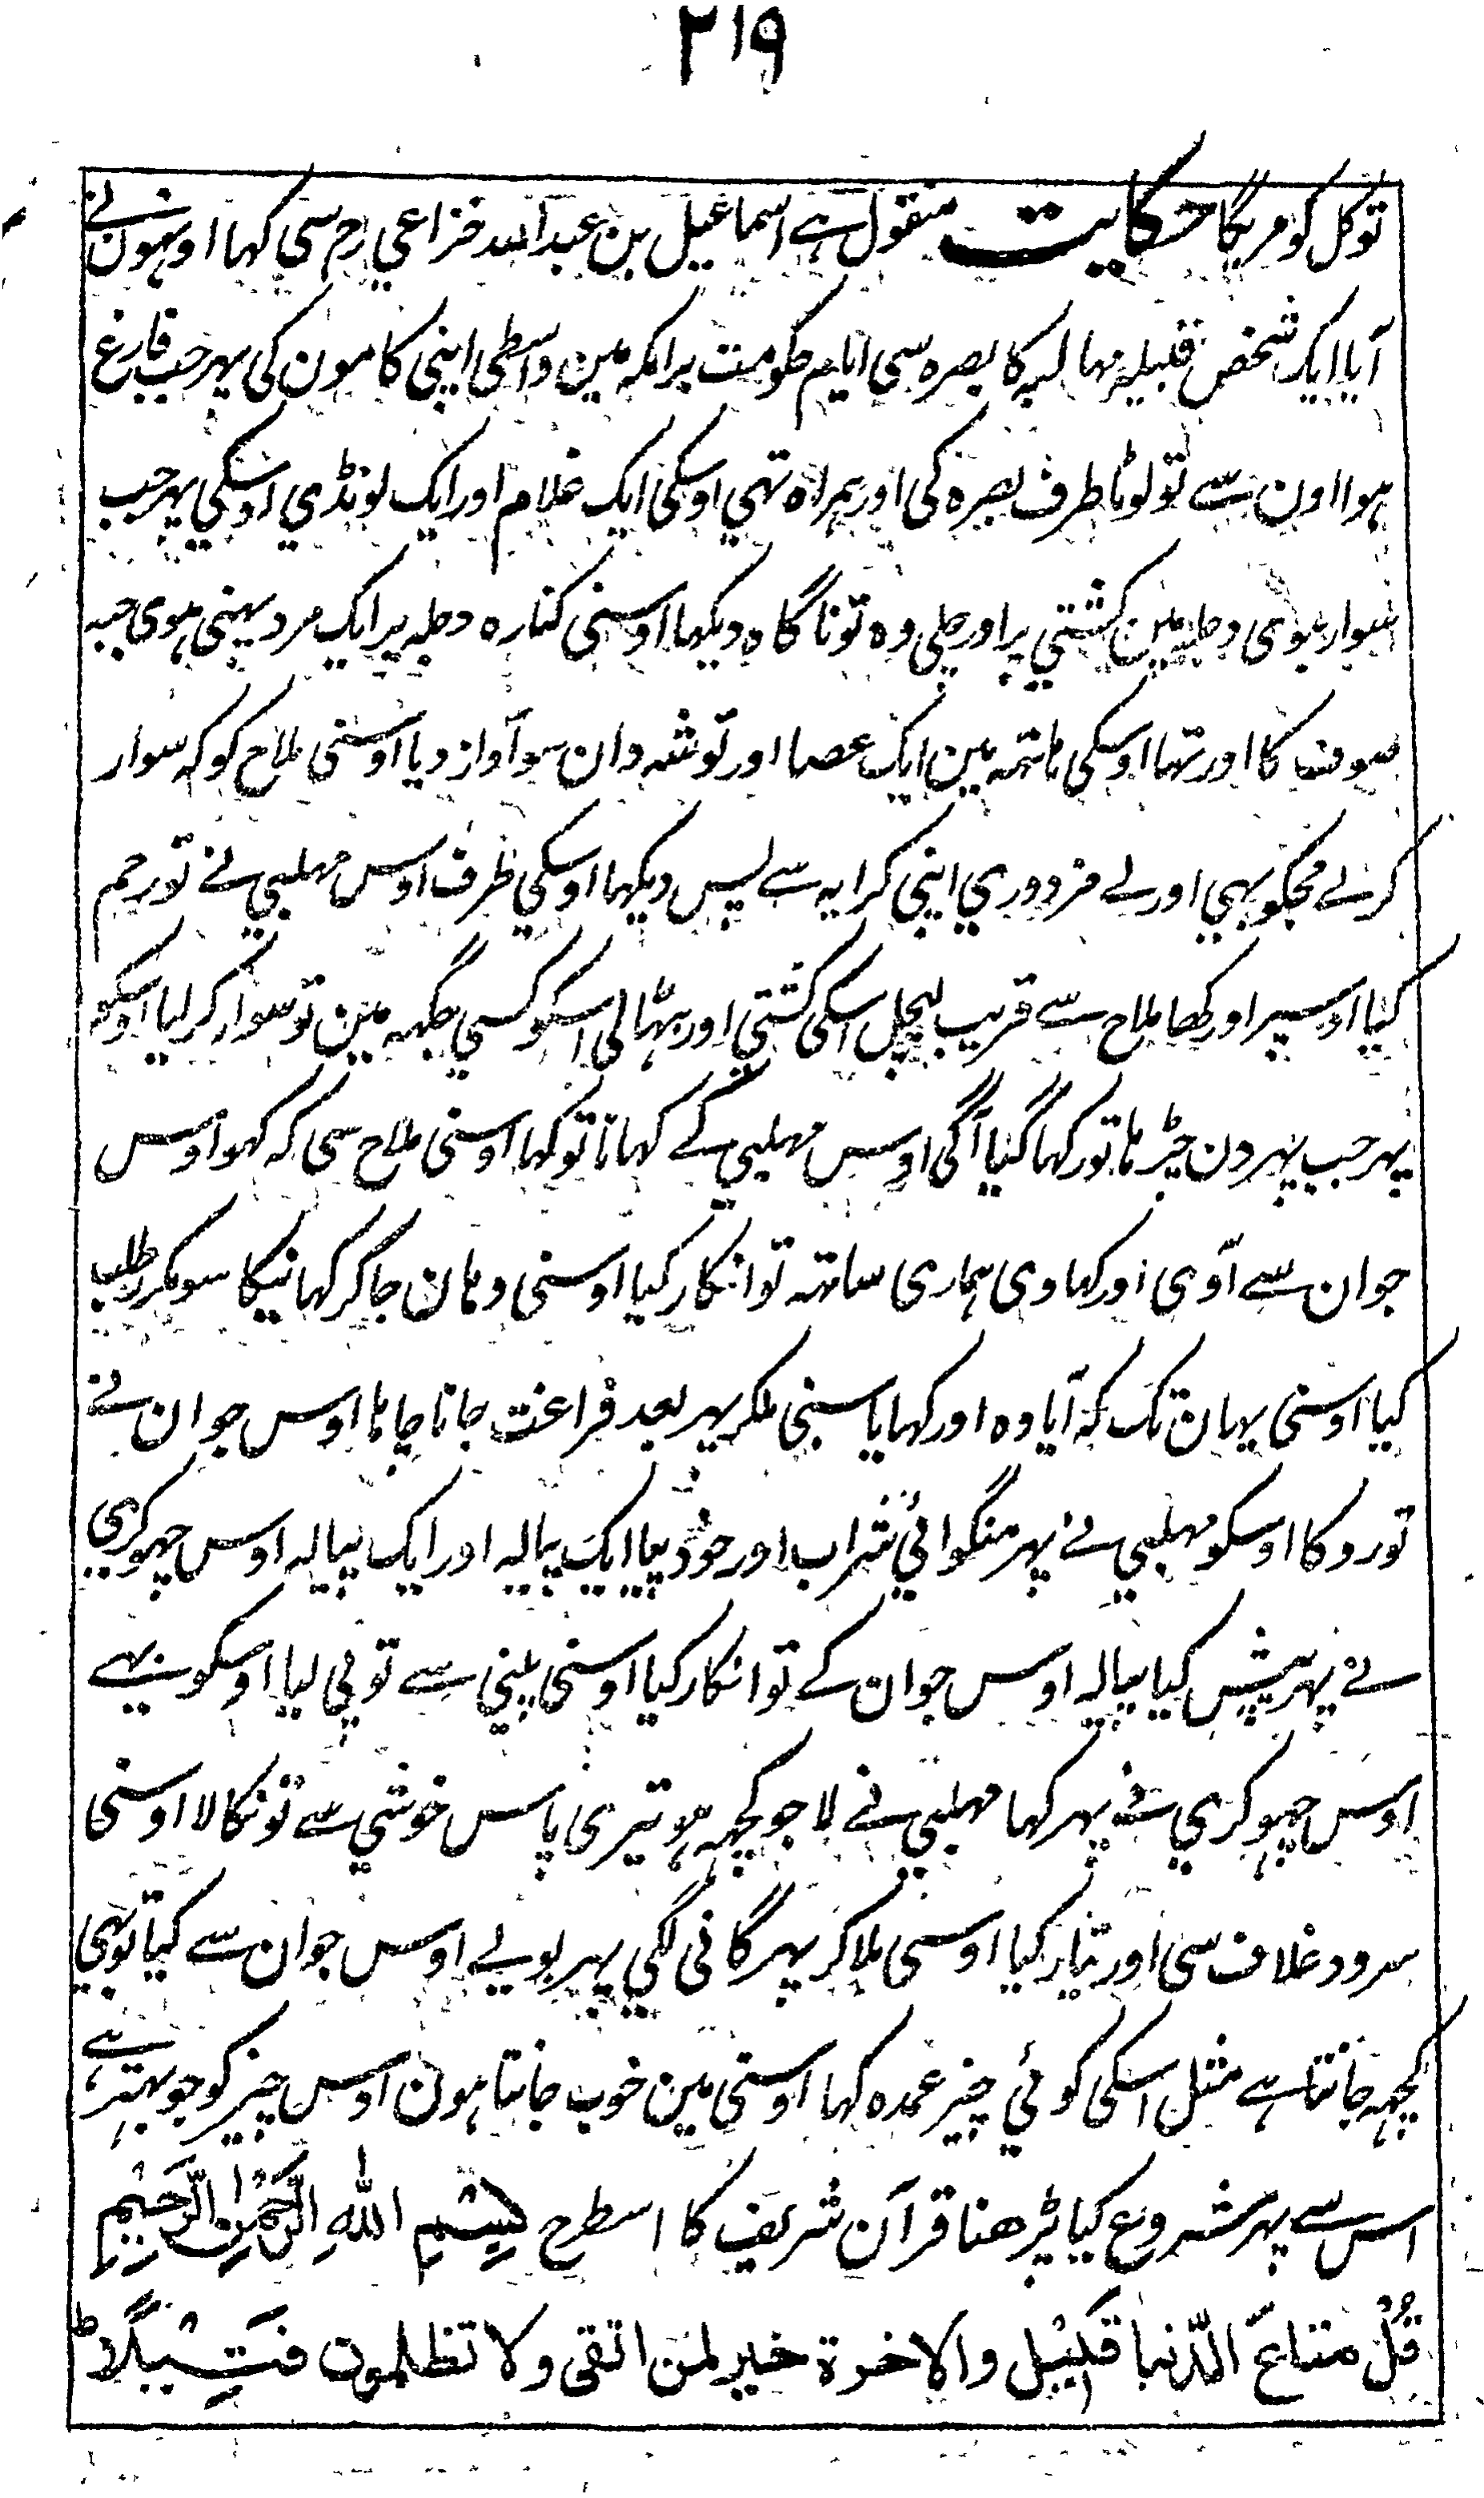 ۲۱۹
توکل کو مریگا حکایت منقول ہے اسماعیل بن عبداللہ خزاعی رح سی کہا اونہون نے
آیا ایک شخص قبیلہ مہالبہ کا بصرہ سی ایام حکومت برامکہ مین واسطی اپنی کامون کی پہر جب فارغ
ہوا اون سے تو لوٹا طرف بصرہ کی اور ہمراہ تہی اوسکی ایک غلام اور ایک لونڈی اوسکی پہر جب
سوار ہوی دجلہ مین کشتی پر اور چلی وہ تو ناگاہ دیکہا اوسنی کنارہ دجلہ پر ایک مرد پہنی ہوی جبہ
صوف کا اور تہا اوسکی ہاتہہ مین ایک عصا اور توشہ دان سو آواز دیا اوسنی ملاح کو کہ سوار
کرلے مجکو بہی اور لے مزدوری اپنی کرایہ سے پس دیکہا اوسکی طرف اوس مہلبی نے تو رحم
کیا اوسپر اور کہا ملاح سے قریب لیچل اسکی کشتی اور بٹہالی اسکو کسی جگہہ مین تو سوار کرلیا اوسکو
پہر جب پہر دن چڑہا تو رکہا گیا آگی اوس مہلبی کے کہانا تو کہا اوسنی ملاح سی کہ کہو اوس
جوان سے آوی اور کہاوی ہماری ساتہہ تو انکار کیا اوسنی وہان جاکر کہانیکا سو مکرر طلب
کیا اوسنی یہان تک کہ آیا وہ اور کہایا سبنی ملکر پہر بعد فراغت جانا چاہا اوس جوان نے
تو روکا اوسکو مہلبی نے پہر منگوائی شراب اور خود پیا ایک پیالہ اور ایک پیالہ اوس چہوکری
نے پہر پیش کیا پیالہ اوس جوان کے تو انکار کیا اوسنی پینی سے تو پی لیا اوسکو بہی
اوس چہوکری نے پہر کہا مہلبی نے لا جو کچہہ ہو تیری پاس خوشی سے تو نکالا اوسنی
سرود غلاف سی اور تیار کیا اوسی ملا کر پہر گانی لگی پہر بولے اوس جوان سے کیا تو بہی
کچہہ جانتا ہے مثل اسکی کوئی چیز عمدہ کہا اوسنی مین خوب جانتا ہون اوس چیز کو جو بہتر ہے
اس سے پہر شروع کیا پڑھنا قرآن شریف کا اسطرح بِسْمِ اللهِ الرَّحْمٰنِ الرَّحِيْمِ
قُلْ متاعَ الدّنيا قَلِيْل والاخرة خير لمن اتقى ولا تظلمون فَتِيْلًا ط